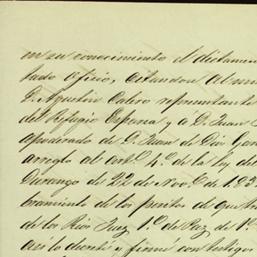 en su conocimiento el dictamen
tado oficio, citandose al
D. Agustin Calvo representante
del Refugio Esparza y á D. Juan
apoderado de D. Juan de Dios Gar
arreglo al artº 4º de la ley de
Durango de 22 de Nov.e de 183
bramiento de los peritos de que
de los Rios Juez 1º de Paz de 1ª
así lo decretó y firmó con testigos